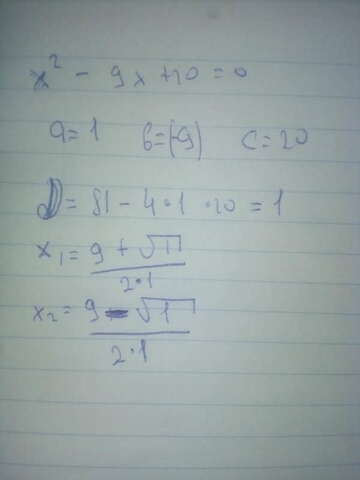 x² - 9x + 20 = 0
a = 1 b = (-9) c = 20
D = 81 - 4 · 1 · 20 = 1
x₁ = (9 + √1) / (2 · 1)
x₂ = (9 - √1) / (2 · 1)